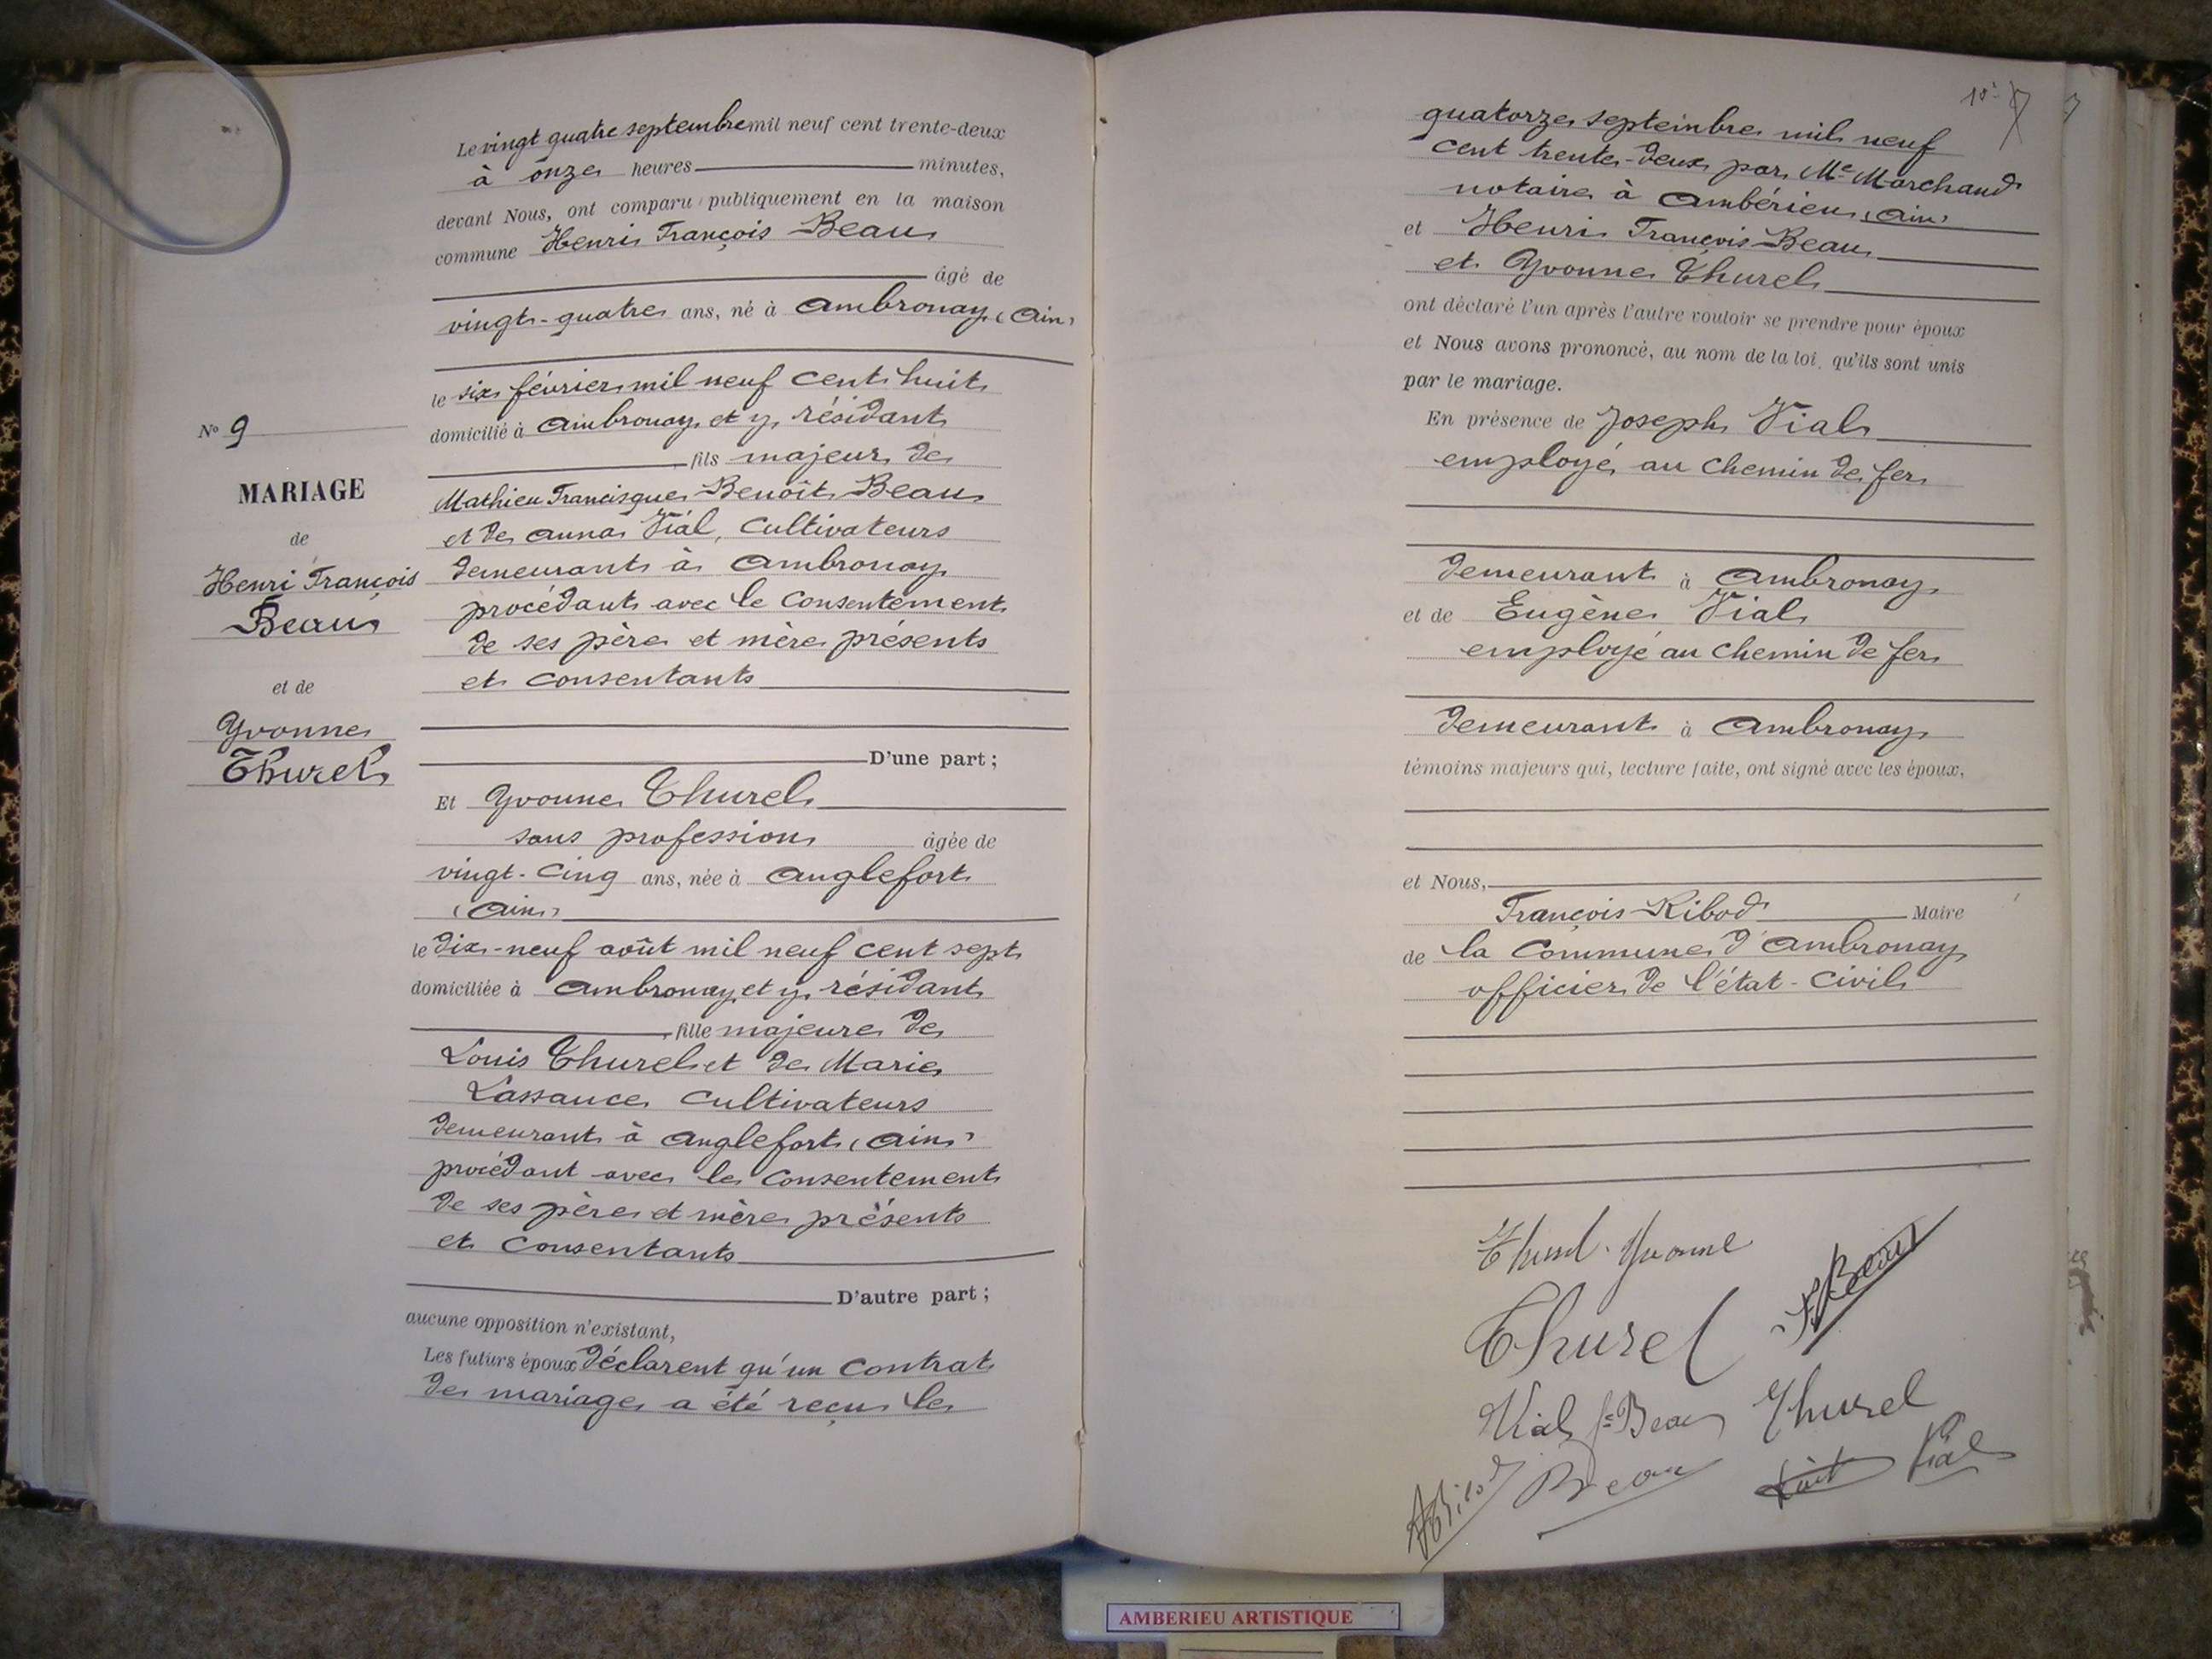 Le vingt quatre septembre mil neuf cent trente-deux
à onze heures minutes,
devant Nous, ont comparu publiquement en la maison
commune Henri François Beau
âgé de
vingt-quatre ans, né à Ambronay (Ain)
le six février mil neuf cent huit
domicilié à Ambronay et y résidant
fils majeur de
Mathieu Francisque Benoît Beau
et de Anna Vial, cultivateurs
demeurant à Ambronay
procédant avec le consentement
de ses père et mère présents
et consentants
D'une part ;
Et Yvonne Thurel
sans profession âgée de
vingt-cinq ans, née à Anglefort
(Ain)
le dix-neuf août mil neuf cent sept
domiciliée à Ambronay et y résidant
fille majeure de
Louis Thurel et de Marie
Lassauce cultivateurs
demeurant à Anglefort (Ain)
procédant avec le consentement
de ses père et mère présents
et consentants
D'autre part ;
aucune opposition n'existant,
Les futurs époux déclarent qu'un contrat
de mariage a été reçu le
No 9
MARIAGE
de
Henri François
Beau
et de
Yvonne
Thurel
quatorze septembre mil neuf
cent trente-deux par Me Marchand
notaire à Ambérieu (Ain)
et Henri François Beau
et Yvonne Thurel
ont déclaré l'un après l'autre vouloir se prendre pour époux
et Nous avons prononcé, au nom de la loi, qu'ils sont unis
par le mariage.
En présence de Joseph Vial
employé au chemin de fer
demeurant à Ambronay
et de Eugène Vial
employé au chemin de fer
demeurant à Ambronay
témoins majeurs qui, lecture faite, ont signé avec les époux,
et Nous,
François Ribod Maire
de la Commune d'Ambronay
officier de l'état-civil
Thurel Yvonne
Beau
Thurel
Vial Beau Thurel
Ribod Beau Vial
AMBERIEU ARTISTIQUE